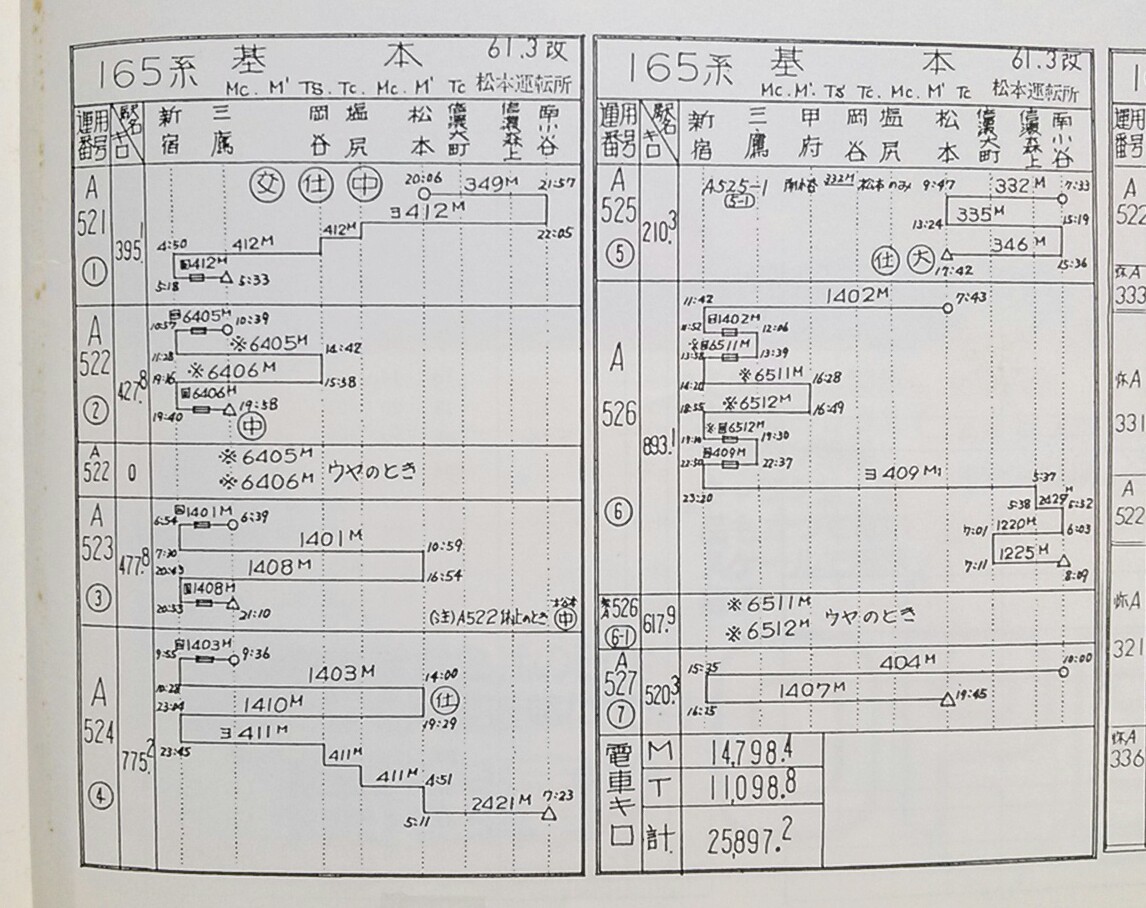 165系 基 本 61.3改
Mc. M' Ts. Tc. Mc. M' Tc 松本運転所
運用番号 駅名 キロ 新宿 三鷹 岡谷 塩尻 松本 信濃大町 信濃森上 南小谷
A 521 ① 395.1
交 仕 中 20:06 349M 21:57
ヨ412M 22:05
412M
4:50 412M
回412M
5:18 5:33
A 522 ② 427.8
回6405M 10:39
10:57 ※6405M
11:28 14:42
※6406M
19:16 15:38
回6406M 19:58
19:40 中
A 522 0
※6405M
※6406M ウヤのとき
A 523 ③ 477.8
回1401M 6:39
6:54 1401M
7:30 10:59
20:43 1408M 16:54
回1408M
20:53 21:10
(注)A522休止のとき 松本 中
A 524 ④ 775.2
回1403M 9:36
9:55 1403M 14:00
10:28 仕
23:04 1410M 19:29
ヨ411M
23:45 411M
411M 4:51
5:11 2421M 7:23
165系 基 本 61.3改
Mc. M'. Ts Tc. Mc. M' Tc 松本運転所
運用番号 駅名 キロ 新宿 三鷹 甲府 岡谷 塩尻 松本 信濃大町 信濃森上 南小谷
A 525 ⑤ 210.3
A525-1 (5-1) 南小谷 332M 松本のみ 9:47 332M 7:33
13:24 335M 15:19
仕 大 346M
17:42 15:36
A 526 ⑥ 893.1
11:42 1402M 7:43
回1402M
11:52 12:06
※回6511M
13:39
※6511M 16:28
14:20
※6512M
18:55 16:49
※回6512M
19:30
回409M
22:37
ヨ409M₁ 5:37
23:20 5:38 2429M 5:32
7:01 1220M 6:03
7:11 1225M 8:09
A526 (6-1) 617.9
※6511M
※6512M ウヤのとき
A 527 ⑦ 520.3
15:35 404M 10:00
1407M 19:45
16:25
電車キロ M 14,798.4
T 11,098.8
計 25,897.2
運用番号
A 522
333
A
331
A 522
A
321
A
336